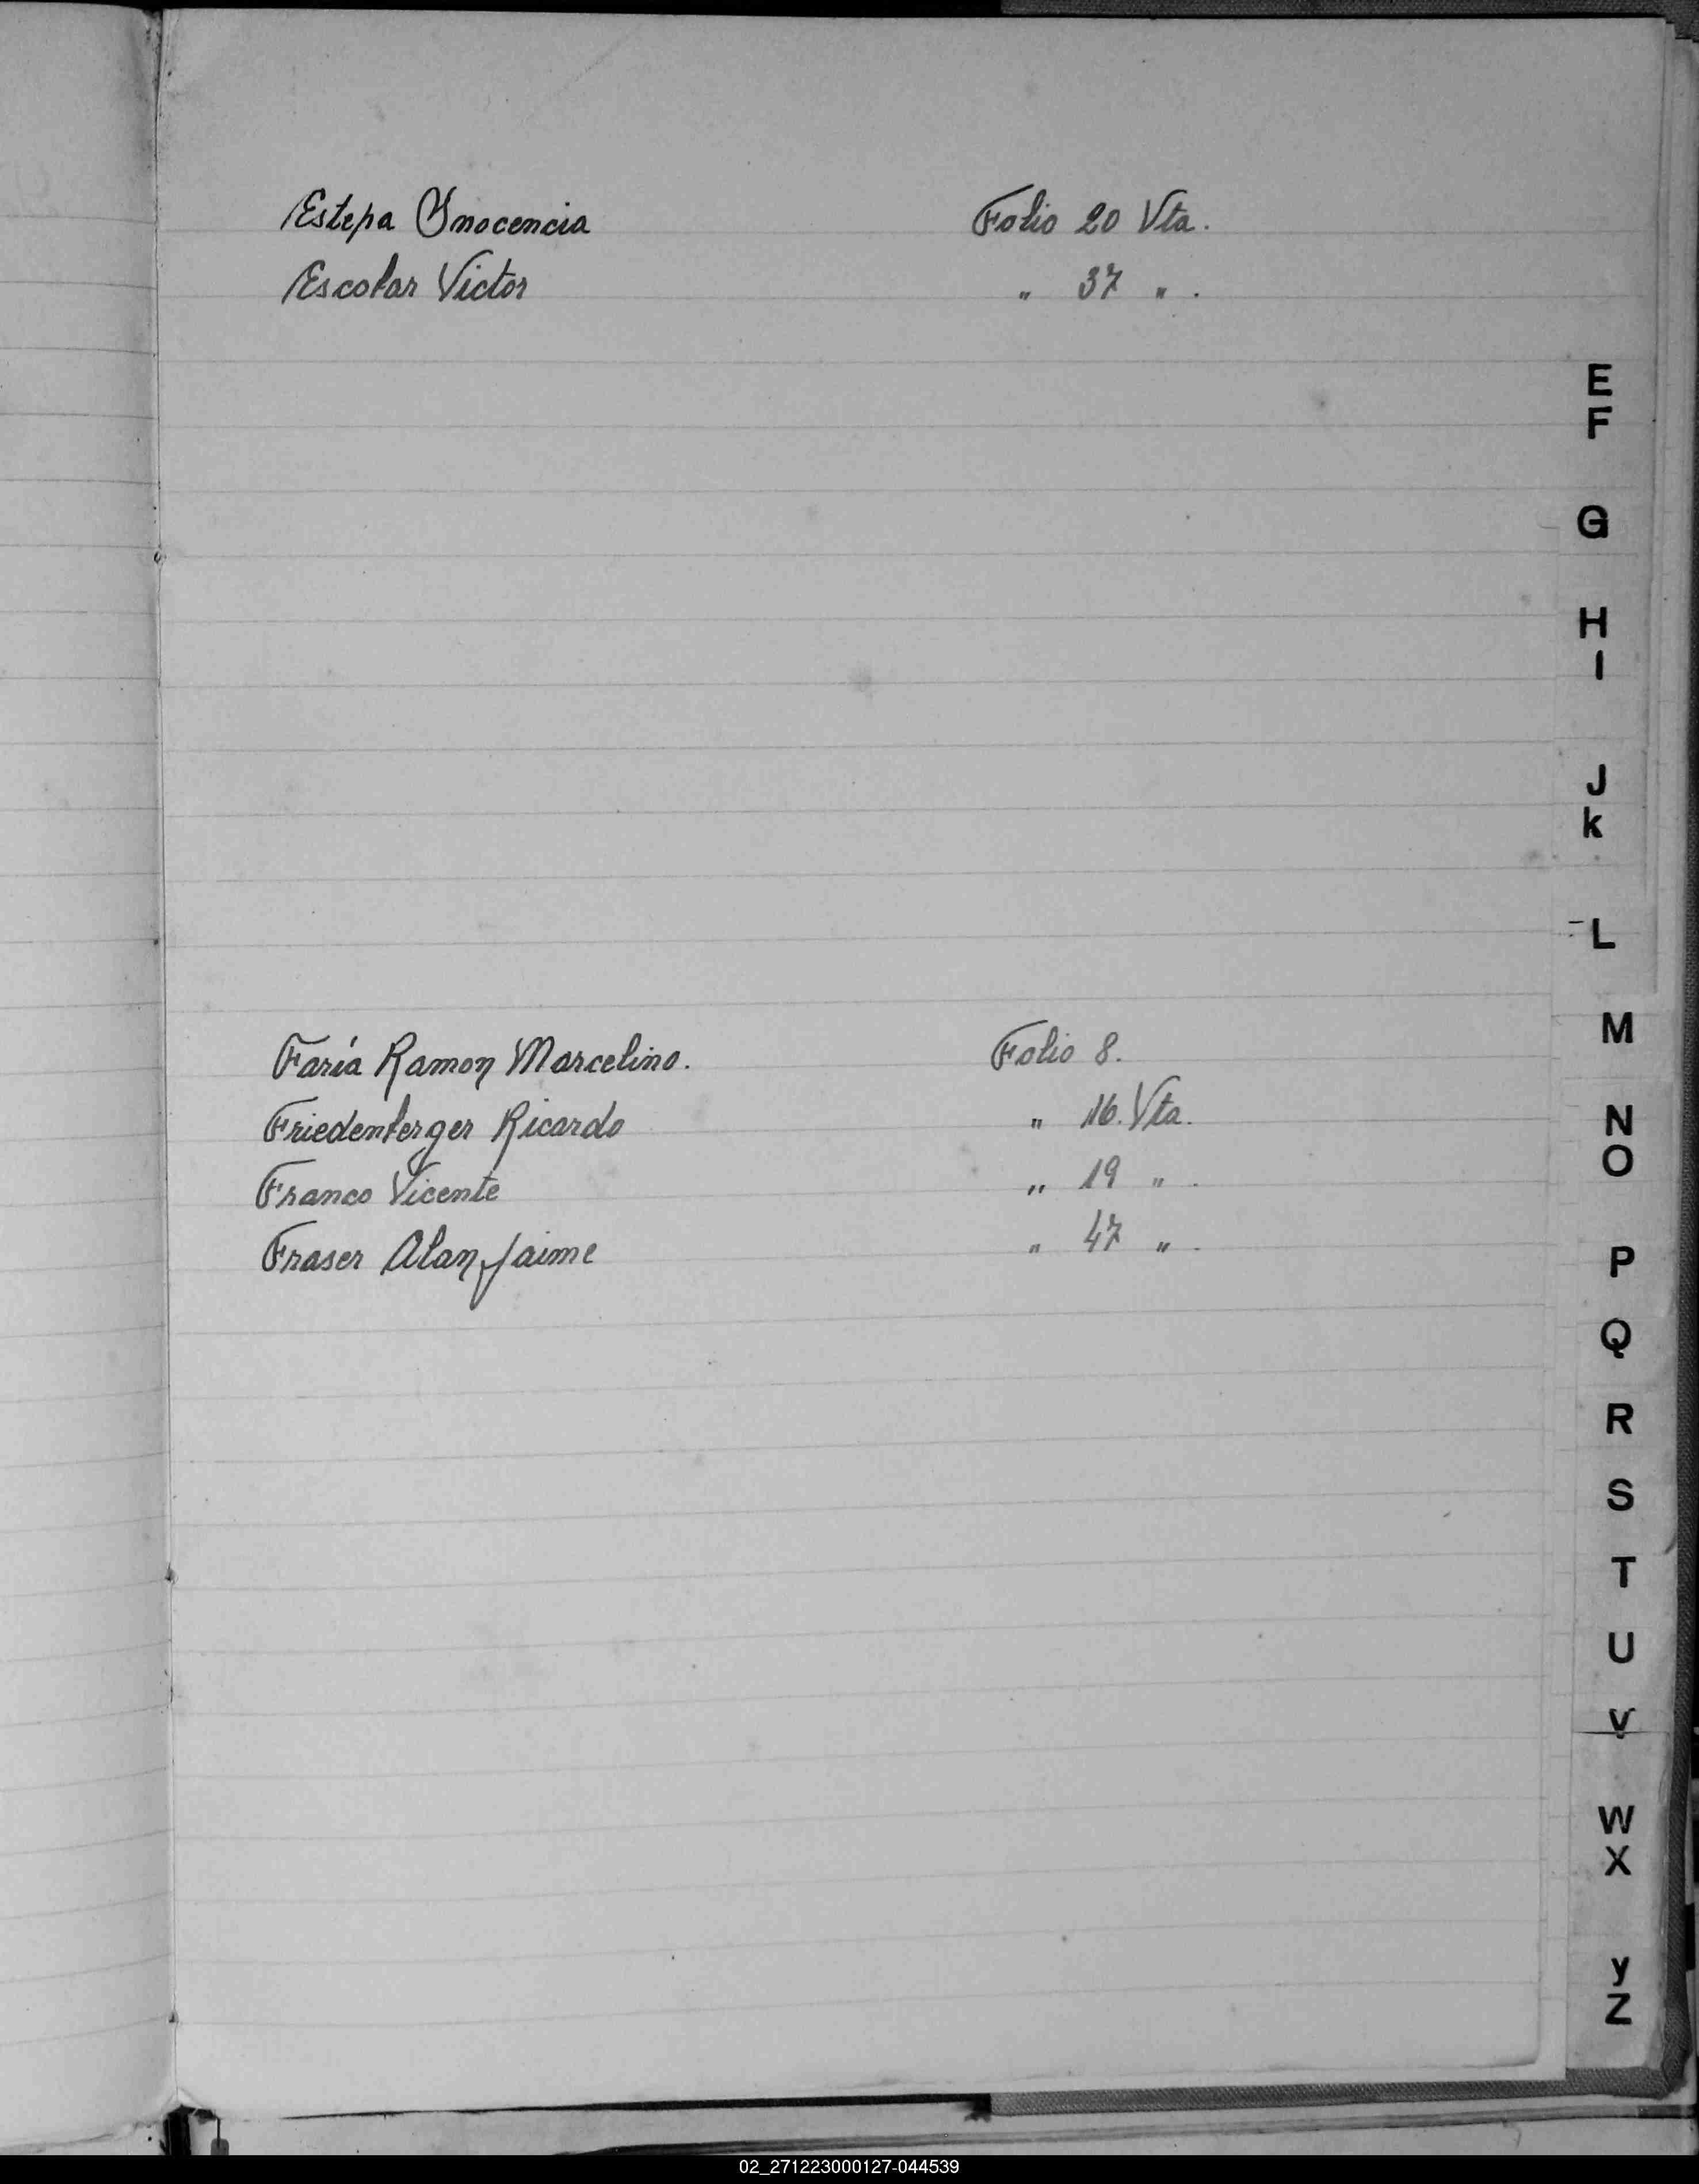 Estepa Ynocencia Folio 20 Vta.
Escolar Victor " 37 " .
E
F
G
H
I
J
k
L
Faría Ramon Marcelino. Folio 8.
M
Friedenberger Ricardo " 16. Vta.
N
O
Franco Vicente " 19 " .
Fraser Alan Jaime " 47 " .
P
Q
R
S
T
U
V
W
X
y
Z
02_271223000127-044539